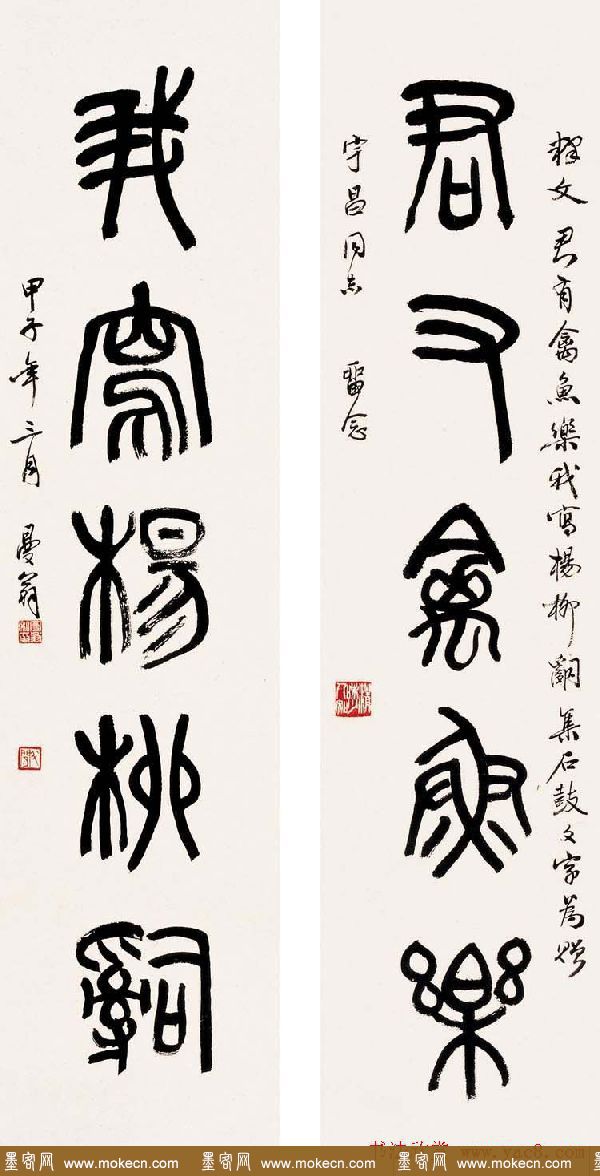 釋文 君有禽魚樂我寫楊柳辭集石鼓文字為贈
君又禽魚樂
宇昌同志 留念
我寫楊柳辭
甲子年三月 曼翁
书法欣赏 www.yac8.com
墨客网 www.mokecn.com 墨客网 www.mokecn.com 墨客网 www.mokecn.com